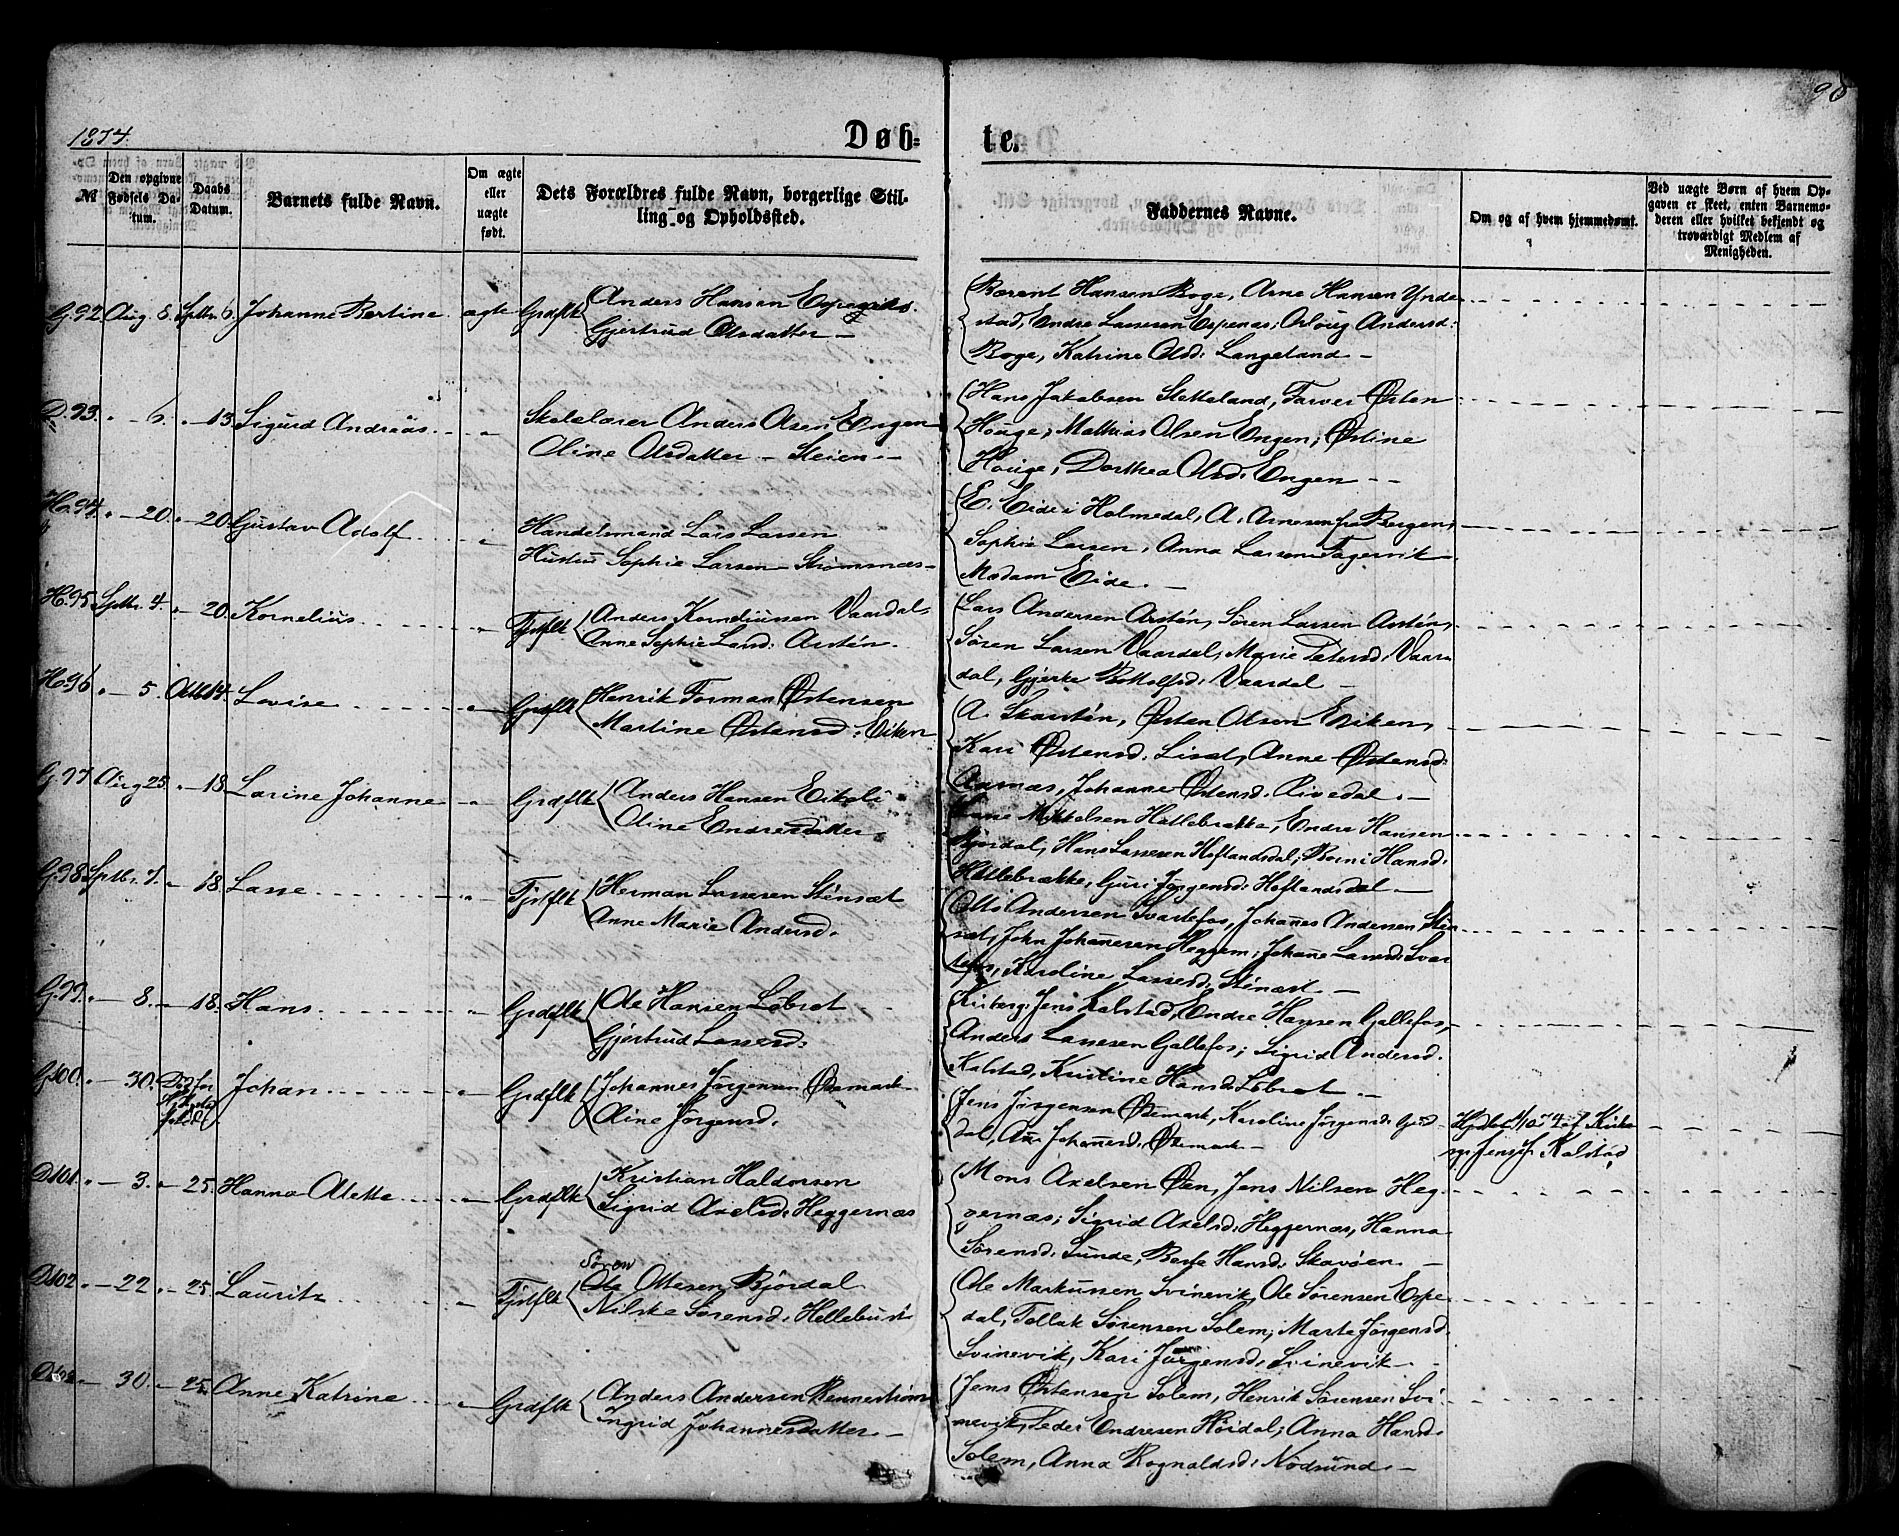 1874.
Døb-
te.
90
№
Den opgivne Fødsels Datum.
Daabs Datum.
Barnets fulde Navn.
Om ægte eller uægte født.
Dets Forældres fulde Navn, borgerlige Stilling og Opholdssted.
Faddernes Navne.
Om og af hvem hjemmedøbt.
Ved uægte Børn af hvem Opgaven er skeet, enten Barnemoderen eller hvilket bekjendt og troværdigt Medlem af Menigheden.
G. 92. Aug. 8. Septbr. 6. Johanne Bertine ægte Grdflk Anders Hansen
Gjertrud Olsdatter
Bærent Hansen Boge, Arne Hansen Ynde-
stad, Endre Lassesen Espenæs; Oloug Andersd:
Boge, Katrine Olsd: Langeland
D. 93. " 6. " 13 Sigurd Andreas " Skolelærer Anders Olsen Engen
Oline Olsdatter - Steien
Hans Jakobsen Sletteland, Farver Østen
Houge, Mathias Olsen Engen; Østine
Houge, Dorthea Olsd: Engen
H. 94. " 20. " 20. Gustav Adolf " Handelsmand Lars Larsen
Hustru Sophie Larsen - Strømsnæs
E. Eide i Holmedal, A. Arnesen fra Bergen,
Sophie Larsen, Anna Larsen Fagervik
Madam Eide.
H. 95 Septbr. 4. " 20. Kornelius " Tjstflk Anders Korneliussen Vaardal
Anne Sophie Larsd: Arstén.
Lars Andersen Arstén, Søren Larsen Arstén,
Søren Larsen Vaardal; Marie Petersd: Vaar-
dal, Gjerke Botholfsd: Vaardal
H. 96 " 5. Octb. 14. Lovise " Grdflk Henrik Forman Østensen
Martine Østensd: Eiken
A. Skarstén, Østen Olsen Eiken,
Kari Østensd: Liset, Anne Østensd:
Aarnæs, Johanne Østensd: Rivedal.
G. 97. Aug 25. " 18. Larine Johanne " Grdflk Anders Hansen Eikeli
Oline Endresdatter
Mikkelsen Hatlebrække, Endre Hansen
Bjørdal, Hans Lassesen Hoflandsdal; Børni Hansd:
Hatlebrække, Guri Jørgensd: Hoflandsdal
G. 98. Septb. 7. " 18. Lasse " Tjstflk Herman Lassesen Sténsæt
Anne Marie Andersd.
Otto Andersen Svartefos, Johanes Andersen Stén-
sæt, John Johanesen Hegrem; Johane Larsd: Svar-
tefos, Karoline Lassesd: Sténsæt
G. 99. " 8. " 18. Hans " Grdflk Ole Hansen Løbset
Gjertrud Lassesd:
Kirkesg: Jens Kalstad, Endre Hansen Gallefos,
Anders Lassesen Gallefos; Sigrid Andersd.
Kalstad, Kristine Hansd: Løbset
G. 100. " 30. Død før Johan " Grdflk Johannes Jørgensen Østmark
Oline Jørgensd.
Jens Jørgensen Østmark, Karoline Jørgensd:
dal, Ane Johanesd: Østmark
Hjdøbt 1/10 74 af Kirke-
sg: Jens Kalstad
D. 101. " 3. " 25. Hanna Alette " Grdflk Kristian Haldorsen
Sigrid Axelsd: Heggernæs
Mons Axelsen Øen, Jens Nilsen Heg-
gernæs; Sigrid Axelsd: Heggernæs, Hanna
Sørensd: Sunde, Berte Hansd: Skavøen
D. 102. " 22. " 25. Lauritz " Tjstflk Søren
Ole Ottesen Bjørdal
Nilske Sørensd: Hellebust
Ole Markussen Svinevik, Ole Sørensen Espe-
dal, Tollak Sørensen Solem; Marte Jørgensd.
Svinevik, Kari Jørgensd: Svinevik
" 30. " 25. Anne Katrine " Grdflk Anders Andersen Rennestrøm
Ingrid Johannesdatter
Jens Østensen Solem, Henrik Sørensen Svi-
nevik, Peder Endresen Høidal; Anna Hansd.
Solem, Anna Rognaldsd: Nødsund